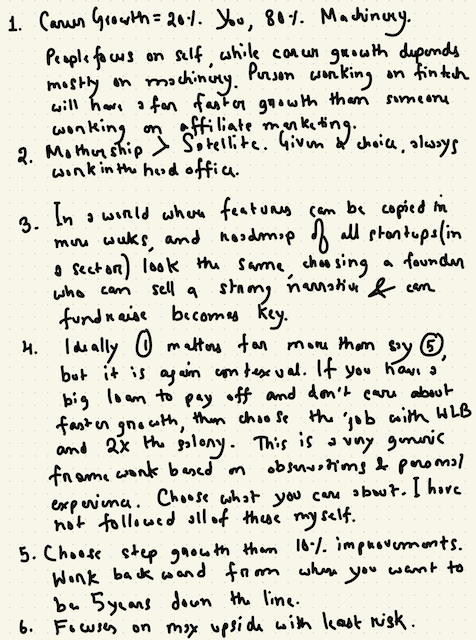 1. Career Growth = 20% You, 80% Machinery.
People focus on self, while career growth depends
mostly on machinery. Person working on fintech
will have a far faster growth than someone
working on affiliate marketing.
2. Mothership > Satellite. Given a choice, always
work in the head office.
3. In a world where features can be copied in
mere weeks, and roadmap of all startups (in
a sector) look the same, choosing a founder
who can sell a strong narrative & can
fundraise becomes key.
4. Ideally 1 matters far more than say 5,
but it is again contexual. If you have a
big loan to pay off and don't care about
faster growth, then choose the job with WLB
and 2X the salary. This is a very generic
framework based on observations & personal
experience. Choose what you care about. I have
not followed all of these myself.
5. Choose step growth than 10% improvements.
Work backward from where you want to
be 5 years down the line.
6. Focuses on max upside with least risk.